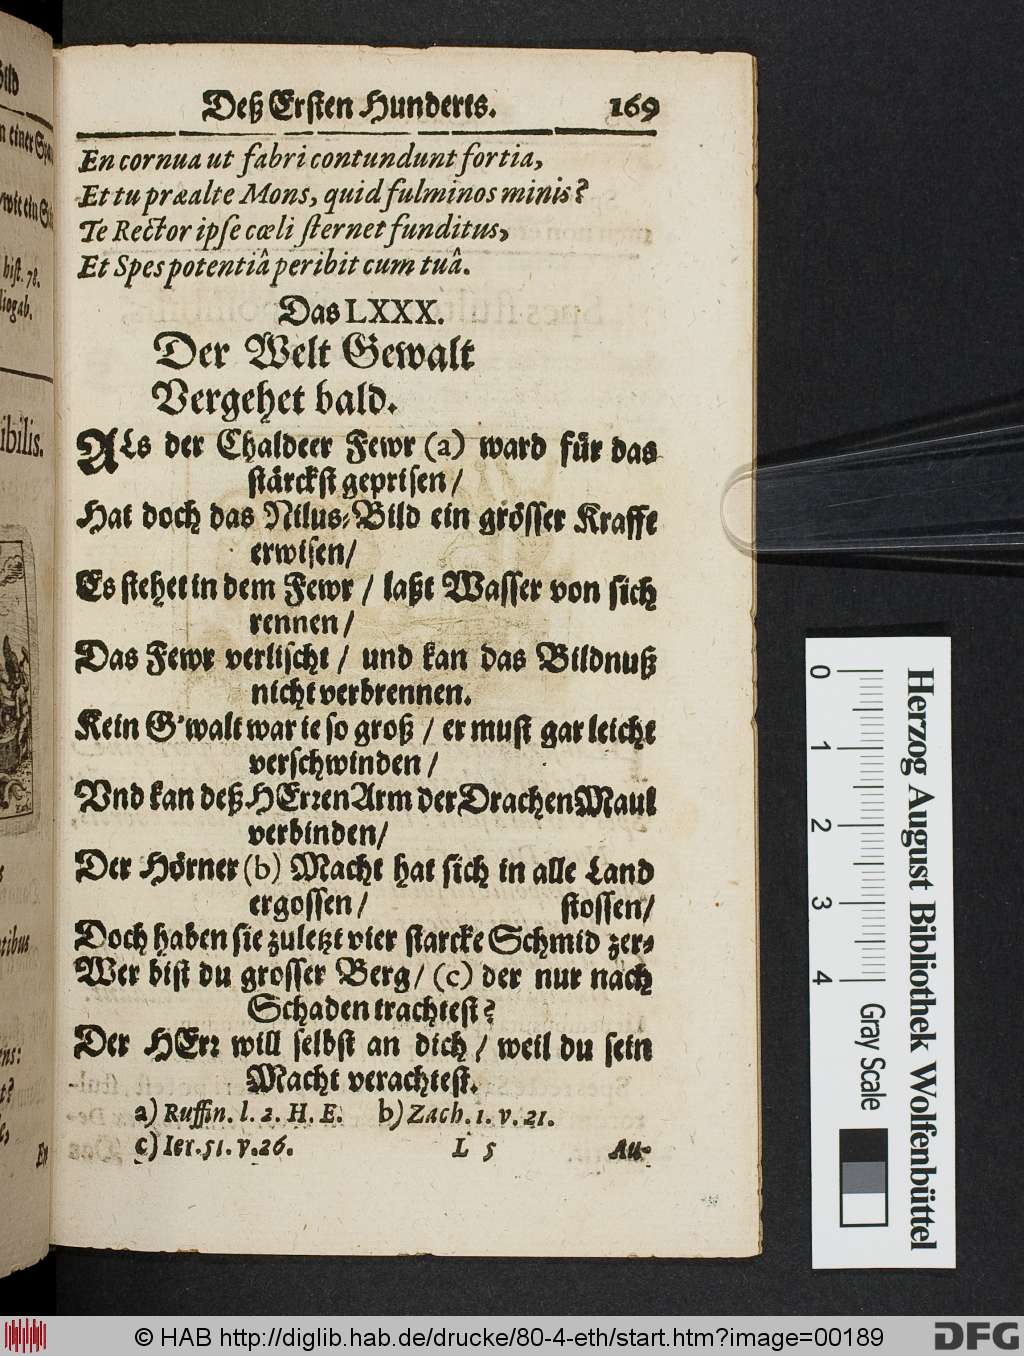 Deß Ersten Hunderts. 169
En cornua ut fabri contundunt fortia,
Et tu præalte Mons, quid fulminos minis?
Te Rector ipse cœli sternet funditus,
Et Spes potentiâ peribit cum tuâ.
Das LXXX.
Der Welt Gewalt
Vergehet bald.
ALs der Chaldeer Fewr (a) ward für das
stärckst geprisen /
Hat doch das Nilus-Bild ein grösser Krafft
erwisen /
Es stehet in dem Fewr / laßt Wasser von sich
rennen /
Das Fewr verlischt / und kan das Bildnuß
nicht verbrennen.
Kein G'walt war ie so groß / er must gar leicht
verschwinden /
Vnd kan deß HErren Arm der Drachen Maul
verbinden /
Der Hörner (b) Macht hat sich in alle Land
ergossen / stossen /
Doch haben sie zuletzt vier starcke Schmid zer-
Wer bist du grosser Berg / (c) der nur nach
Schaden trachtest?
Der HErr will selbst an dich / weil du sein
Macht verachtest.
a) Ruffin. l. 2. H. E. b) Zach. 1. v. 21.
c) Ier. 51. v. 26. L 5 Au-
Bild
n einer
hist. 78.
ibilis.
Herzog August Bibliothek Wolfenbüttel
0 1 2 3 4
Gray Scale
© HAB http://diglib.hab.de/drucke/80-4-eth/start.htm?image=00189
DFG